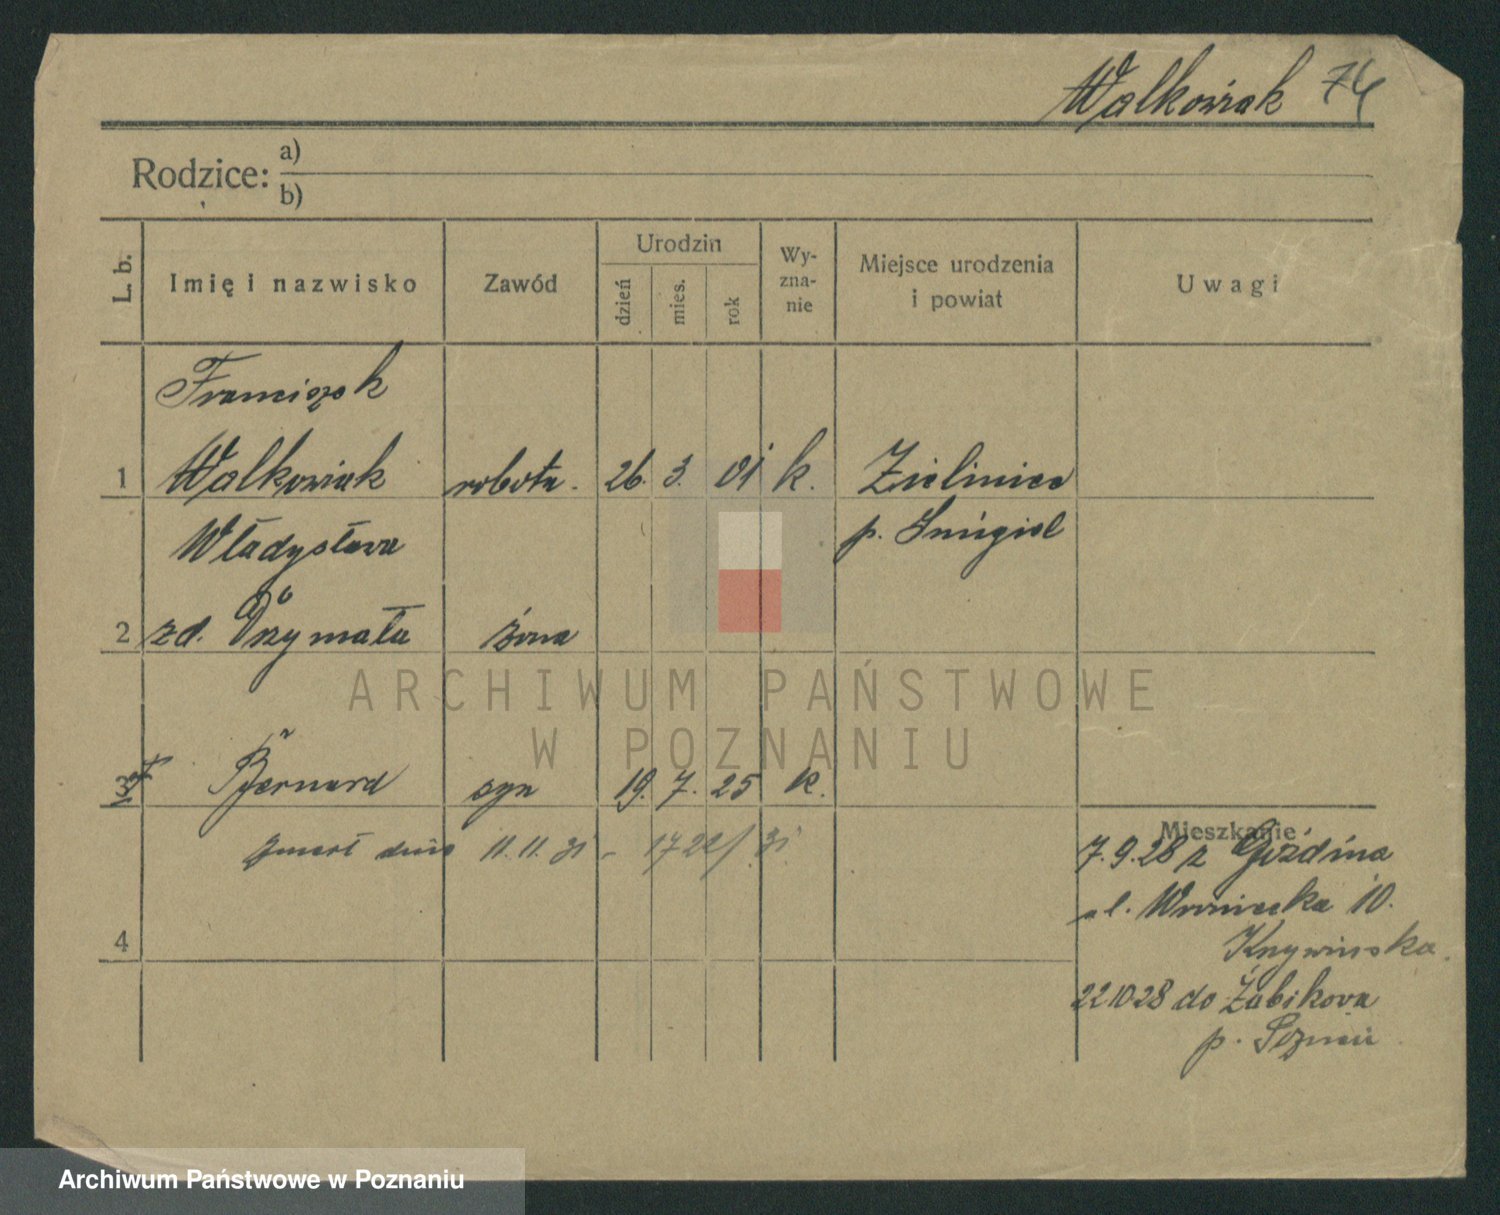 Walkowiak 74
Rodzice: a)
b)
L. b.
Imię i nazwisko
Zawód
Urodzin
dzień
mies.
rok
Wy-
zna-
nie
Miejsce urodzenia
i powiat
Uwagi
Franciszek
1 Walkowiak robotn. 26. 3. 01 k. Zielinice
Władysława p. Śmigiel
2 zd. Drzymała żona
ARCHIWUM PAŃSTWOWE
W POZNANIU
3 Bernard syn 19. 7. 25 k.
zmarł dnia 11.11.31 - 1722/31
Mieszkanie
7.9.28 z
ul. Wroniecka 10.
4
22 10 28 do Żabikowa
p. Poznań
Archiwum Państwowe w Poznaniu